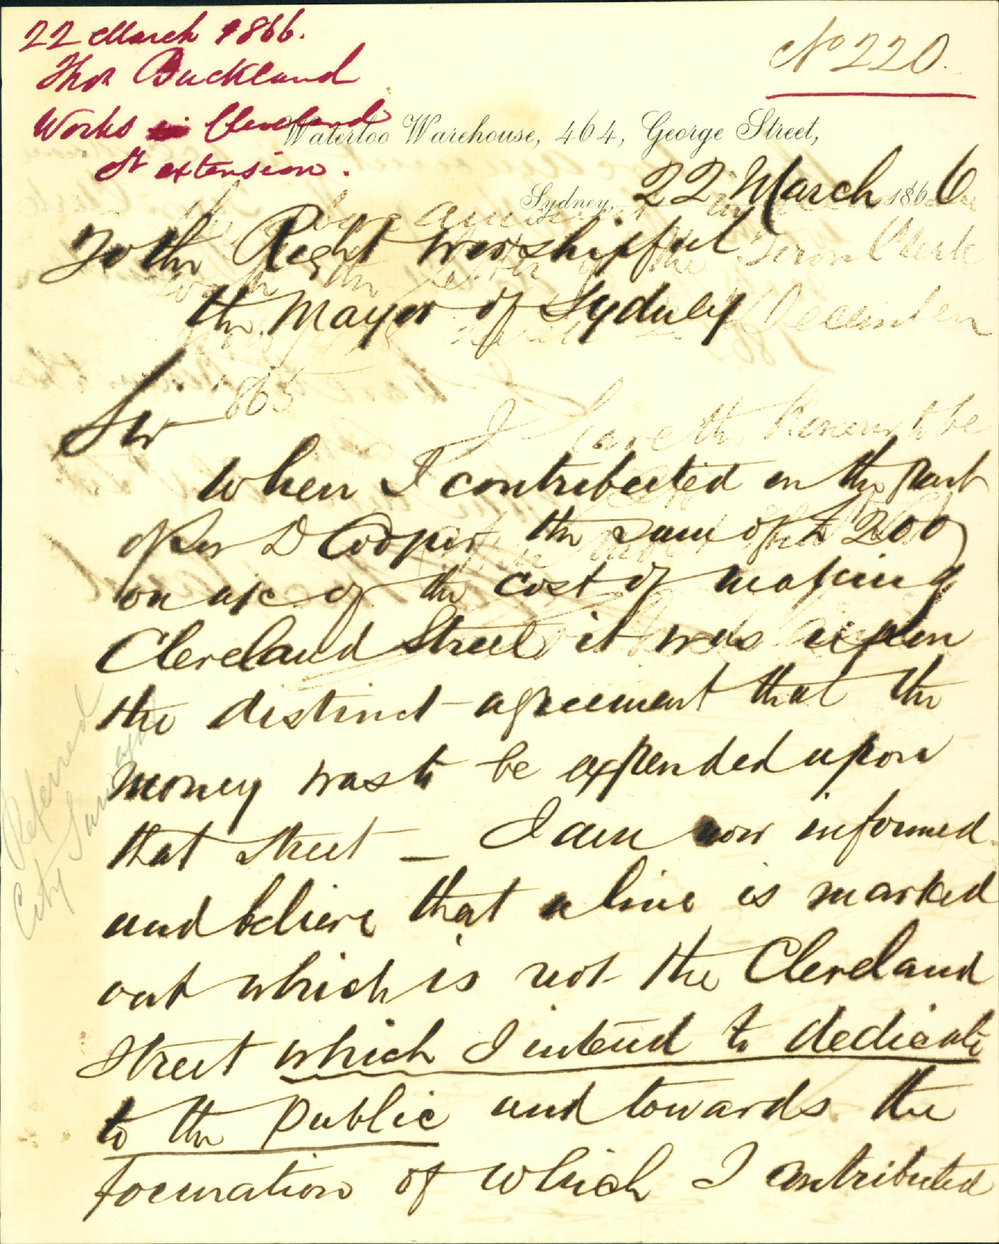 22 March 1866.
Thos Buckland
Works in Cleveland
St extension.
No 220
Waterloo Warehouse, 464, George Street,
Sydney, 22 March 1866
To the Right Worshipful
the Mayor of Sydney
Sir
When I contributed on the part
of Sir D Cooper the sum of £200
on a/c of the cost of making
Cleveland Street it was upon
the distinct agreement that the
money was to be expended upon
that street — I am now informed
and believe that a line is marked
out which is not the Cleveland
Street which I intend to dedicate
to the Public and towards the
formation of which I contributed
Referred
City Surveyor